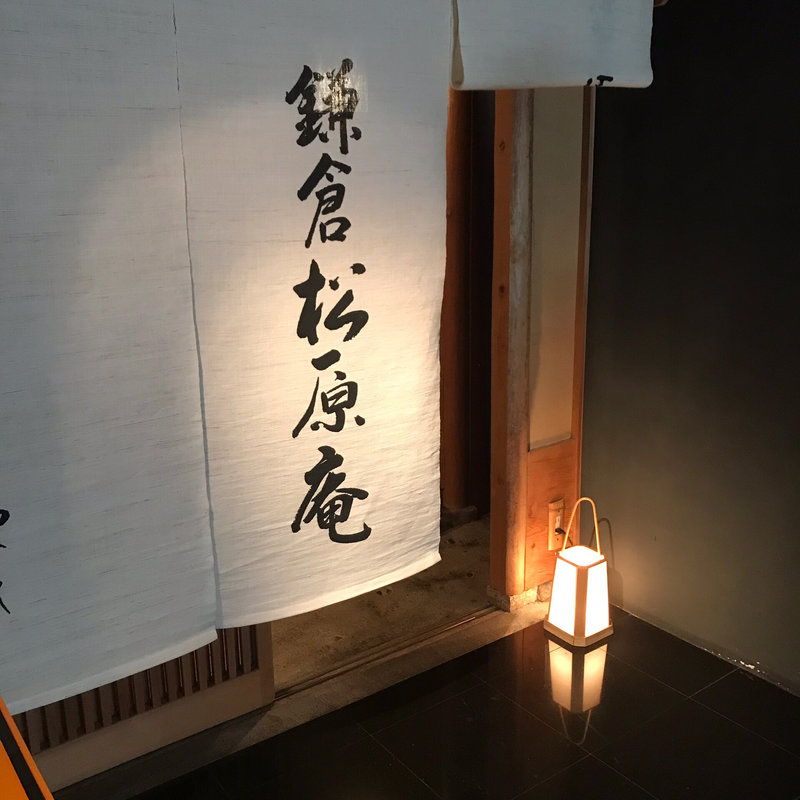 鎌倉松原庵